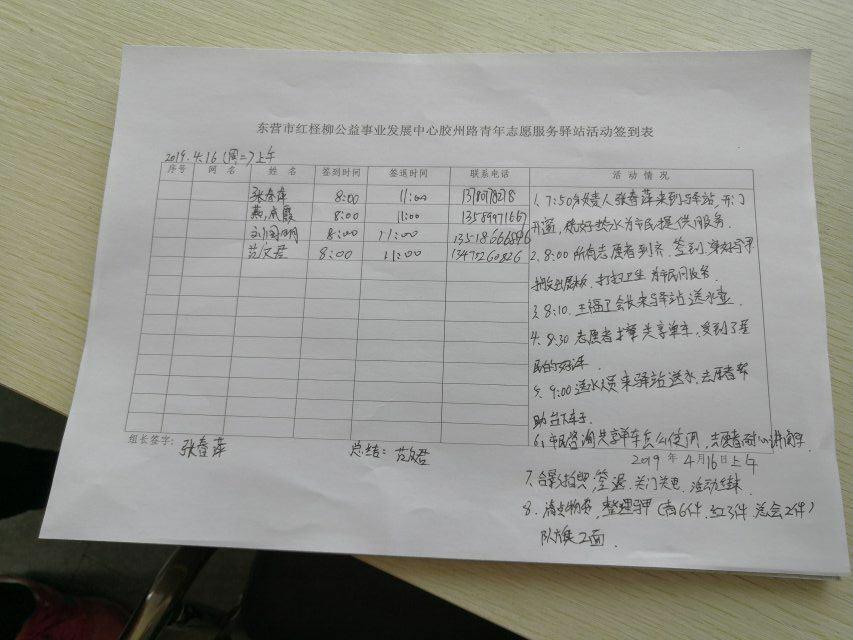 东营市红柽柳公益事业发展中心胶州路青年志愿服务驿站活动签到表
2019.4.16(周二)上午
序号 网名 姓名 签到时间 签退时间 联系电话 活动情况
张春萍 8:00 11:00
8:00 11:00 13589971667
刘国明 8:00 11:00
范文君 8:00 11:00
1. 7:50负责人张春萍来到驿站,开门
开通,烧好热水为市民提供服务.
2. 8:00 所有志愿者到齐,签到,穿好马甲
打扫卫生 为市民服务.
3. 8:10. 王福了会长来驿站送水壶
4. 8:30 志愿者摆共享单车,受到了居
民的好评.
5. 9:00 送水人员来驿站送水,志愿者帮
助
6. 市民咨询共享单车怎么使用,志愿者耐心讲解
组长签字: 张春萍 总结: 范文君
2019年4月16日上午
7. 合影拍照,签退,关门关电,活动结束
8. 清点物资,整理马甲(青6件,红3件,总会2件)
队旗2面.